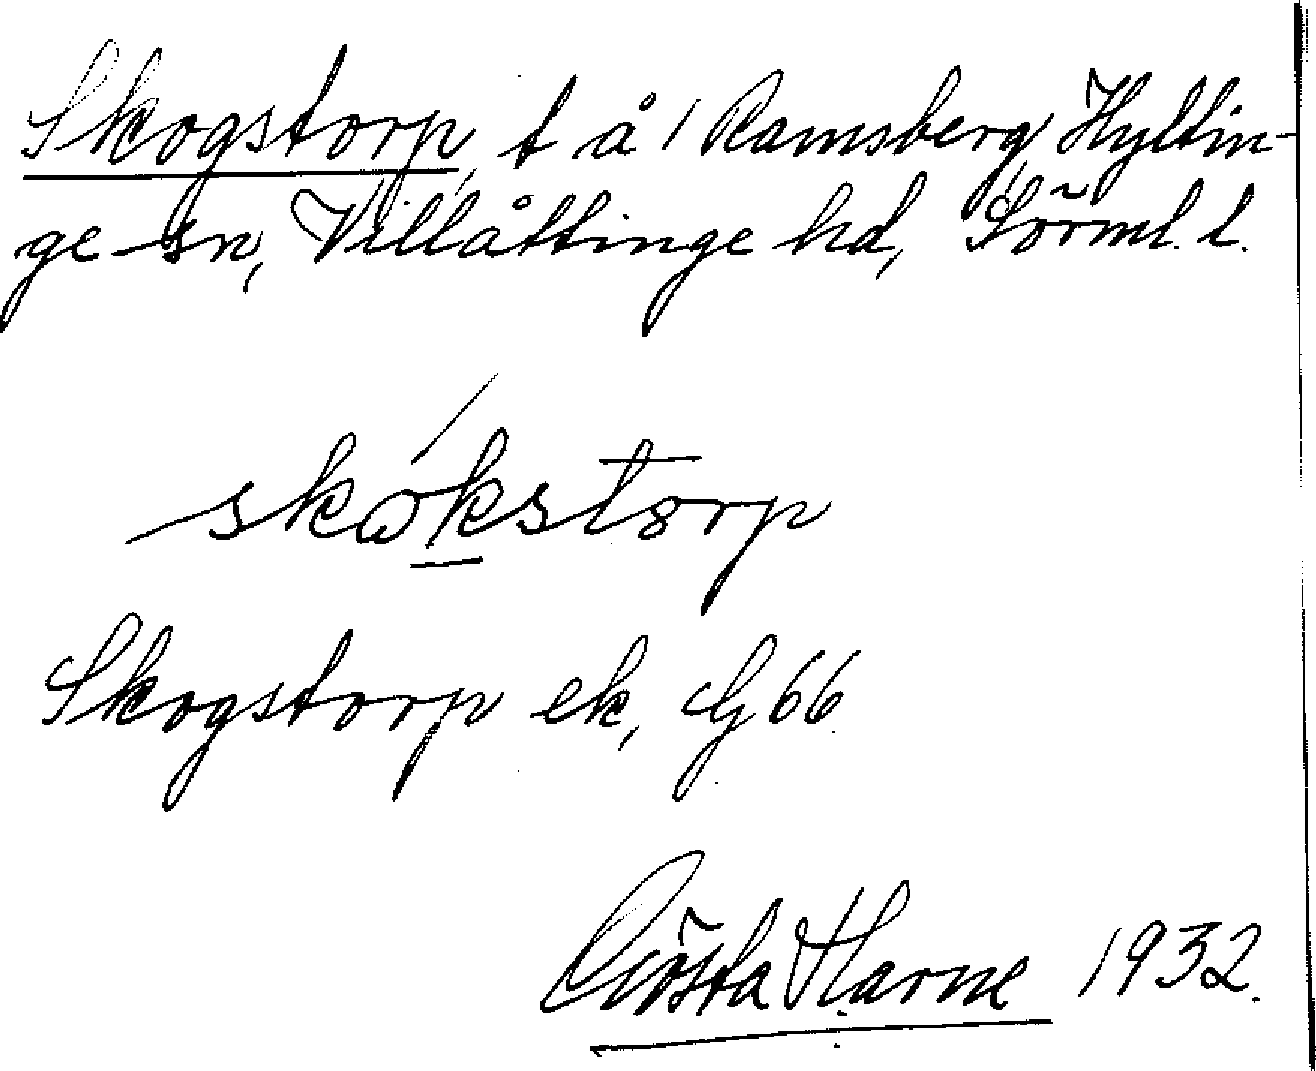 Skogstorp, t å 1 Ramsberg, Hyltin-
ge sn, Villåttinge hd, Sörml. l.
skωkstorp
Skogstorp ek, G 66
Gösta Harne 1932.